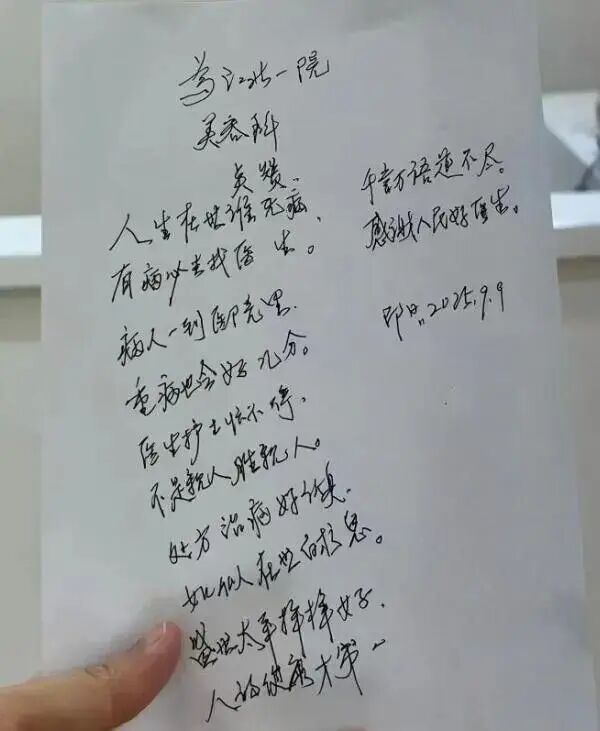 为江北一院
美容科
点赞.
人生在世谁无病,
有病必去找医生。
病人一到医院里.
重病也会好几分。
医生护士忙不停,
不是亲人胜亲人。
处方治病好
如仙人在世
盛世太平样样好,
人的健康才第一
千言万语道不尽。
感谢人民好医生。
即日.2025.9.9